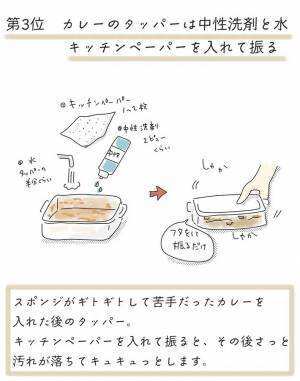 第3位 カレーのタッパーは中性洗剤と水
キッチンペーパーを入れて振る
キッチンペーパー
1〜2枚
中性洗剤
2ピュー
くらい
中性
水
タッパーの
半分くらい
しゃか
フタをして
振るだけ
しゃか
スポンジがギトギトして苦手だったカレーを
入れた後のタッパー。
キッチンペーパーを入れて振ると、その後さっと
汚れが落ちてキュキュっとします。